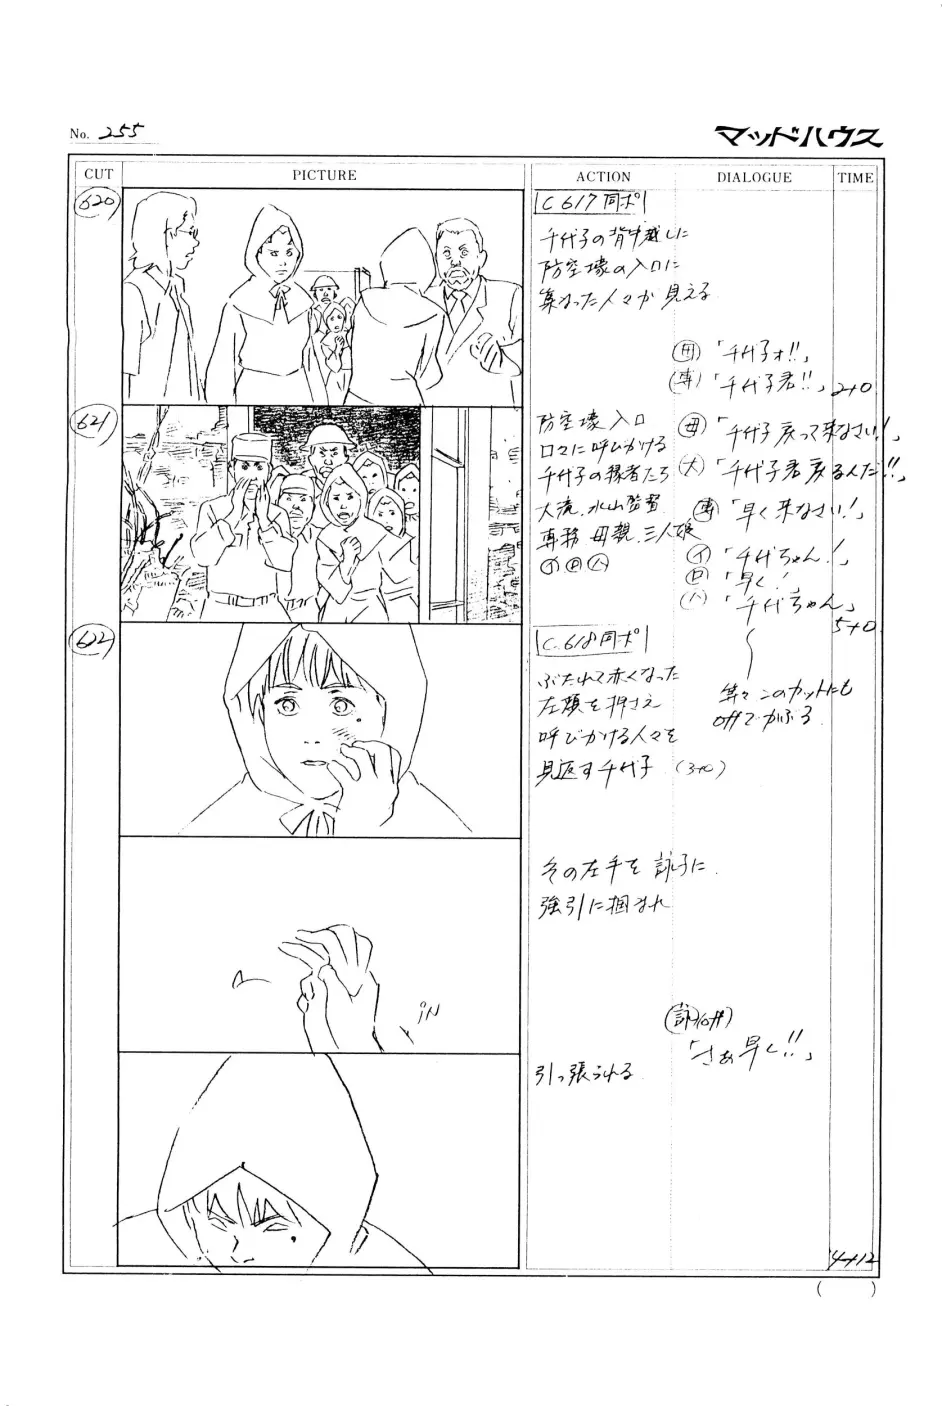 No. 255
マッドハウス
CUT PICTURE ACTION DIALOGUE TIME
620
C 617 同ポ
千代子の背中越しに
防空壕の入口に
集まった人々が見える
母 「千代子ォ!!」
専 「千代子君!!」 2+0
621
防空壕入口
口々に呼びかける
千代子の縁者たち
大滝、水山監督
専務 母親、三人娘
イ ロ ハ
母 「千代子 戻って来なさい!」
大 「千代子君 戻るんだ!!」
専 「早く来なさい!」
イ 「千代ちゃん!」
ロ 「早く!」
ハ 「千代ちゃん」
5+0
622
C.618 同ポ
ぶたれて赤くなった
左頬を押さえ
呼びかける人々を
見返す千代子 (3+0)
等々このカットにも
offでかぶる
その左手を詠子に
強引に掴まれ
iN
詠(off)
「さぁ早く!!」
引っ張られる
4+12
( )